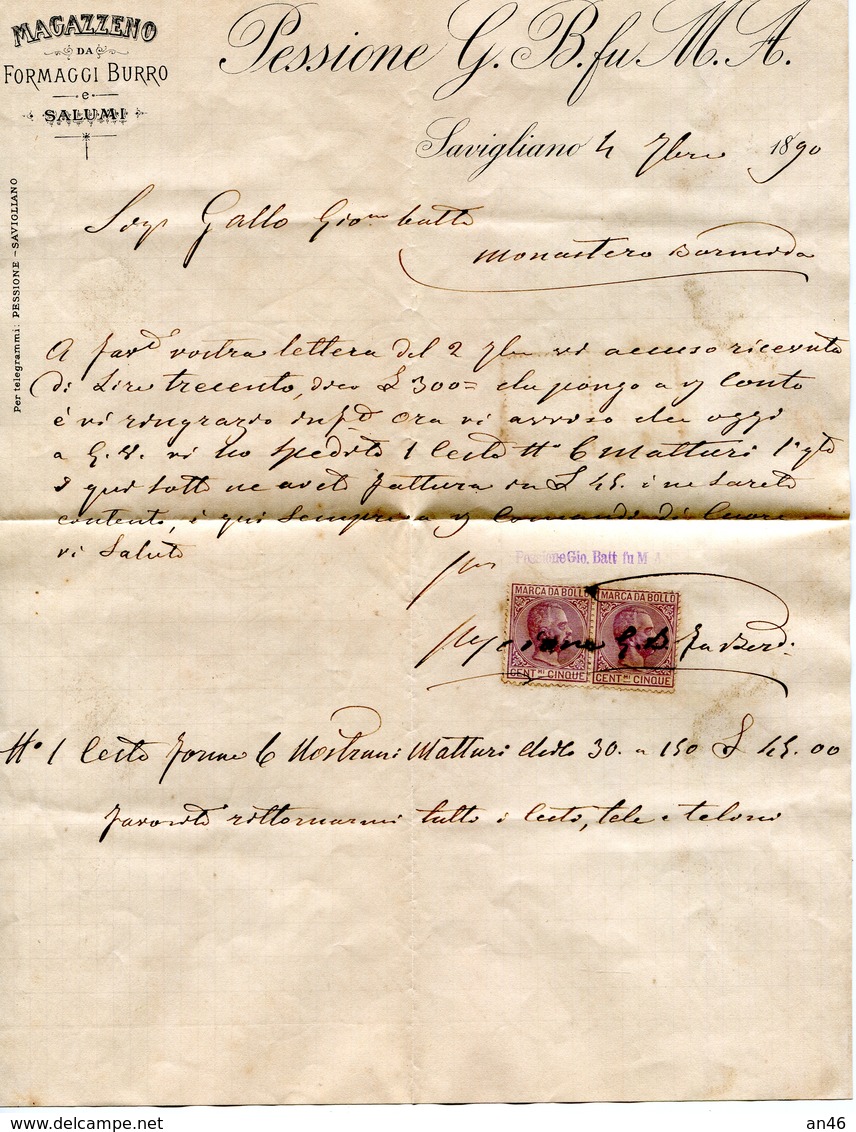 MAGAZZENO
DA
FORMAGGI BURRO
e
SALUMI
Pessione G. B. fu M. A.
Savigliano 4 7bre 1890
Per telegrammi: PESSIONE - SAVIGLIANO
Sigr Gallo Giovni batta
Monastero Bormida
A favta vostra lettera del 2 7bre vi accuso ricevuta
di Lire trecento, dico £ 300= che pongo a vj Conto
è vi ringrazio Ora vi avviso che oggi
a G. V. vi ho spedito 1 Cesto No 6 Matturi 1a qta
è qui sotto ne avete fattura in £ 45. i ne sarete
contento, è qui sempre a vj Comandi di Cuore
vi Saluto
per Pessione Gio. Batt fu M A
MARCA DA BOLLO MARCA DA BOLLO
G. B.
CENT.MI CINQUE CENT.MI CINQUE
No 1 Cesto Forme 6 Nostrani Matturi chilo 30. a 150 £ 45.00
Favorite rittornarmi tutto i Cesti, tele e teloni
an46
www.delcampe.net